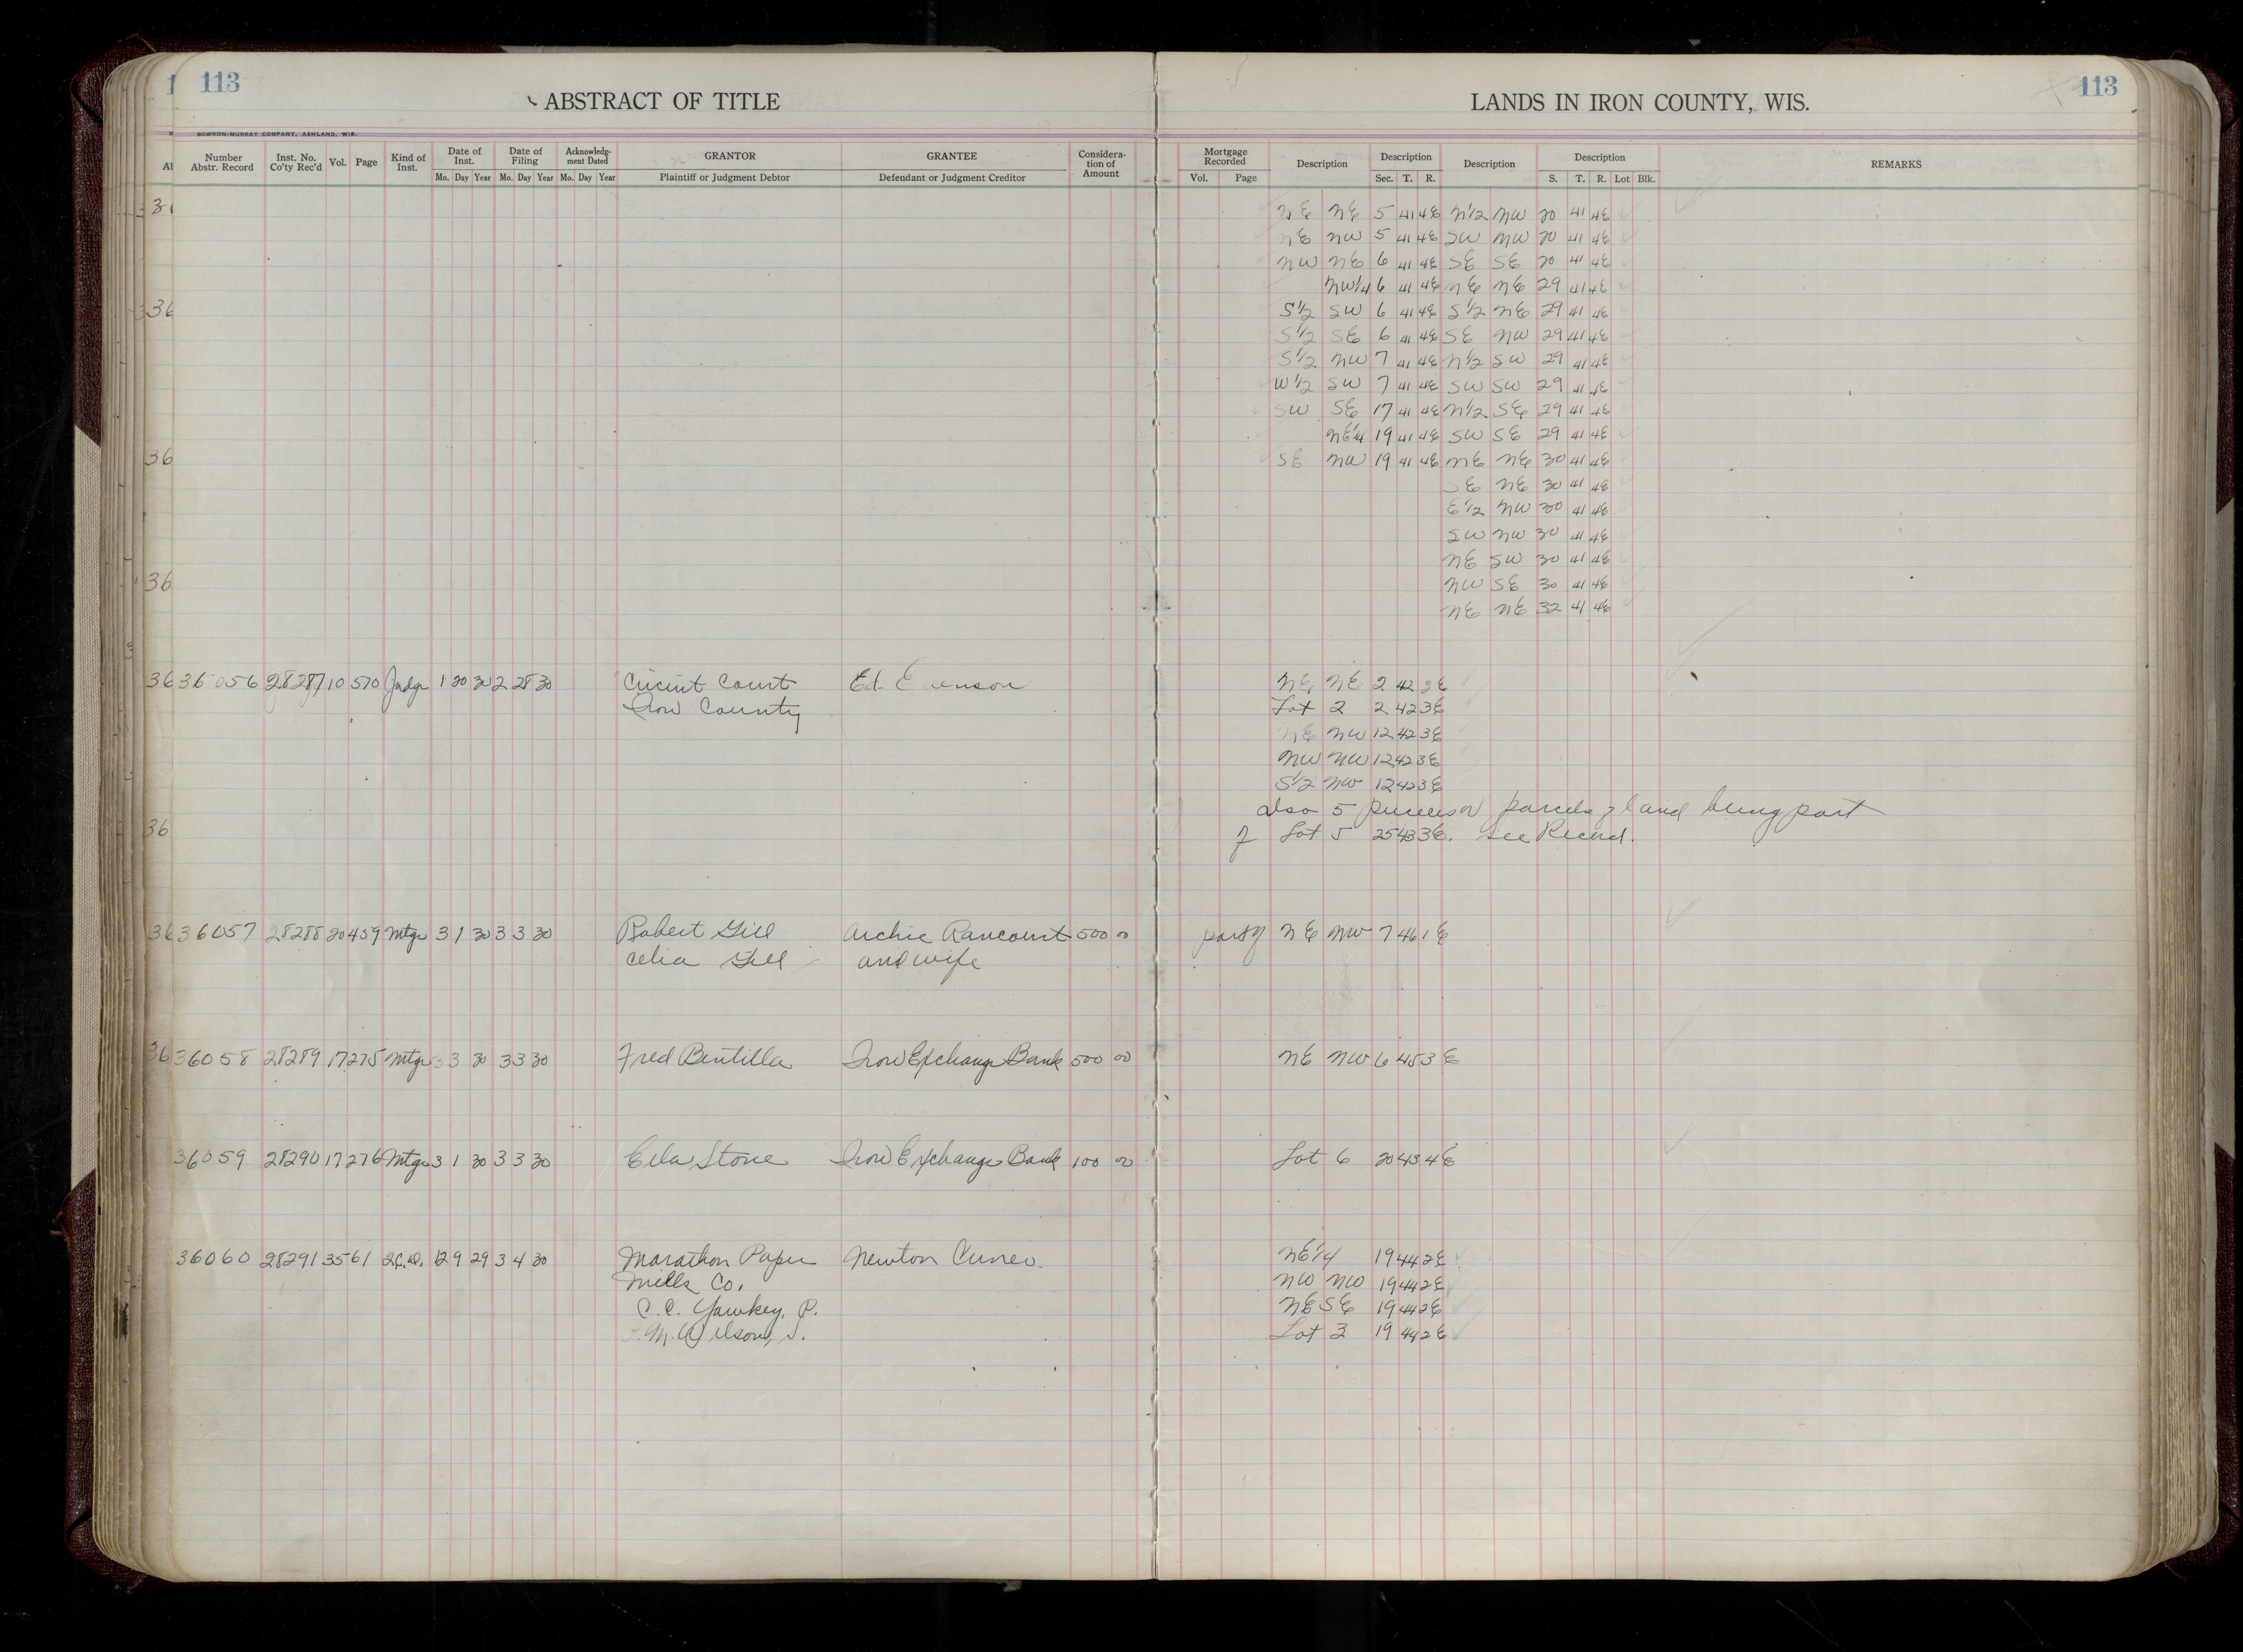 113
ABSTRACT OF TITLE
LANDS IN IRON COUNTY, WIS.
113
BOWRON-MURRAY COMPANY, ASHLAND, WIS.
Number Abstr. Record Inst. No. Co'ty Rec'd Vol. Page Kind of Inst. Date of Inst. Date of Filing Acknowledg-ment Dated GRANTOR GRANTEE Considera-tion of Amount Mortgage Recorded Description Description Description Description REMARKS
Mo. Day Year Mo. Day Year Mo. Day Year Plaintiff or Judgment Debtor Defendant or Judgment Creditor Vol. Page Sec. T. R. S. T. R. Lot Blk.
NE NE 5 41 4E N1/2 NW 20 41 4E
NE NW 5 41 4E SW NW 20 41 4E
NW NE 6 41 4E SE SE 20 41 4E
NW1/4 6 41 4E NE NE 29 41 4E
S1/2 SW 6 41 4E S1/2 NE 29 41 4E
S1/2 SE 6 41 4E SE NW 29 41 4E
S1/2 NW 7 41 4E N1/2 SW 29 41 4E
W1/2 SW 7 41 4E SW SW 29 41 4E
SW SE 17 41 4E N1/2 SE 29 41 4E
NE1/4 19 41 4E SW SE 29 41 4E
SE NW 19 41 4E NE NE 30 41 4E
SE NE 30 41 4E
E1/2 NW 30 41 4E
SW NW 30 41 4E
NE SW 30 41 4E
NW SE 30 41 4E
NE NE 32 41 4E
36056 28287 10 570 Judg 1 20 30 2 28 30 Circuit Court Ed. Evenson NE NE 2 42 3E
Iron County Lot 2 2 42 3E
NE NW 12 42 3E
NW NW 12 42 3E
S1/2 NW 12 42 3E
also 5 pieces or parcels of land being part
of Lot 5 25 43 3E. See Record.
36057 28288 20 459 Mtge 3 1 30 3 3 30 Robert Gill Archie Rancourt 500 00 part of NE NW 7 46 1E
Celia Gill and wife
36058 28289 17 275 Mtge 3 3 30 3 3 30 Fred Bentilla Iron Exchange Bank 500 00 NE NW 6 45 3E
36059 28290 17 276 Mtge 3 1 30 3 3 30 Stone Iron Exchange Bank 100 00 Lot 6 20 43 4E
36060 28291 35 61 2C.D. 12 9 29 3 4 30 Marathon Paper Newton Cuneo. NE1/4 19 44 2E
Mills Co. NW NW 19 44 2E
C.C. Yawkey, P. NE SE 19 44 2E
M. Wilson, S. Lot 3 19 44 2E